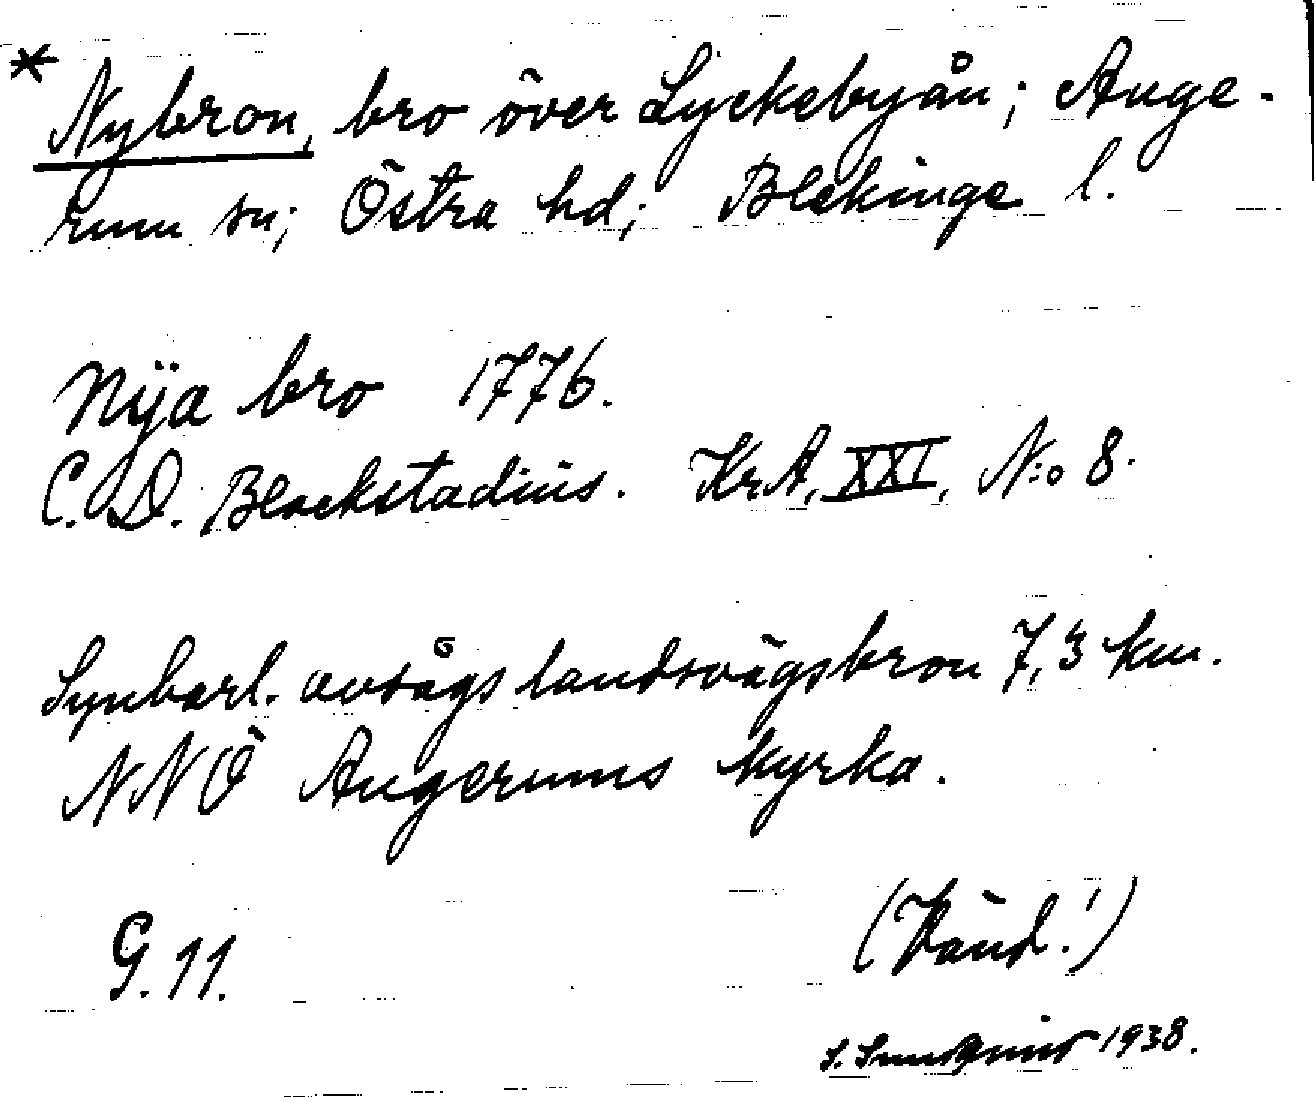 * Nybron, bro över Lyckebyån; Auge-
rum sn; Östra hd; Blekinge l.
Nÿa bro 1776.
C. D. Blackstadius. KrA, XXI, N:o 8.
Synbarl. avsågs landsvägsbron 7,3 km.
NNÖ Augerums kyrka.
G. 11. (Vänd!)
S. Sundqvist 1938.